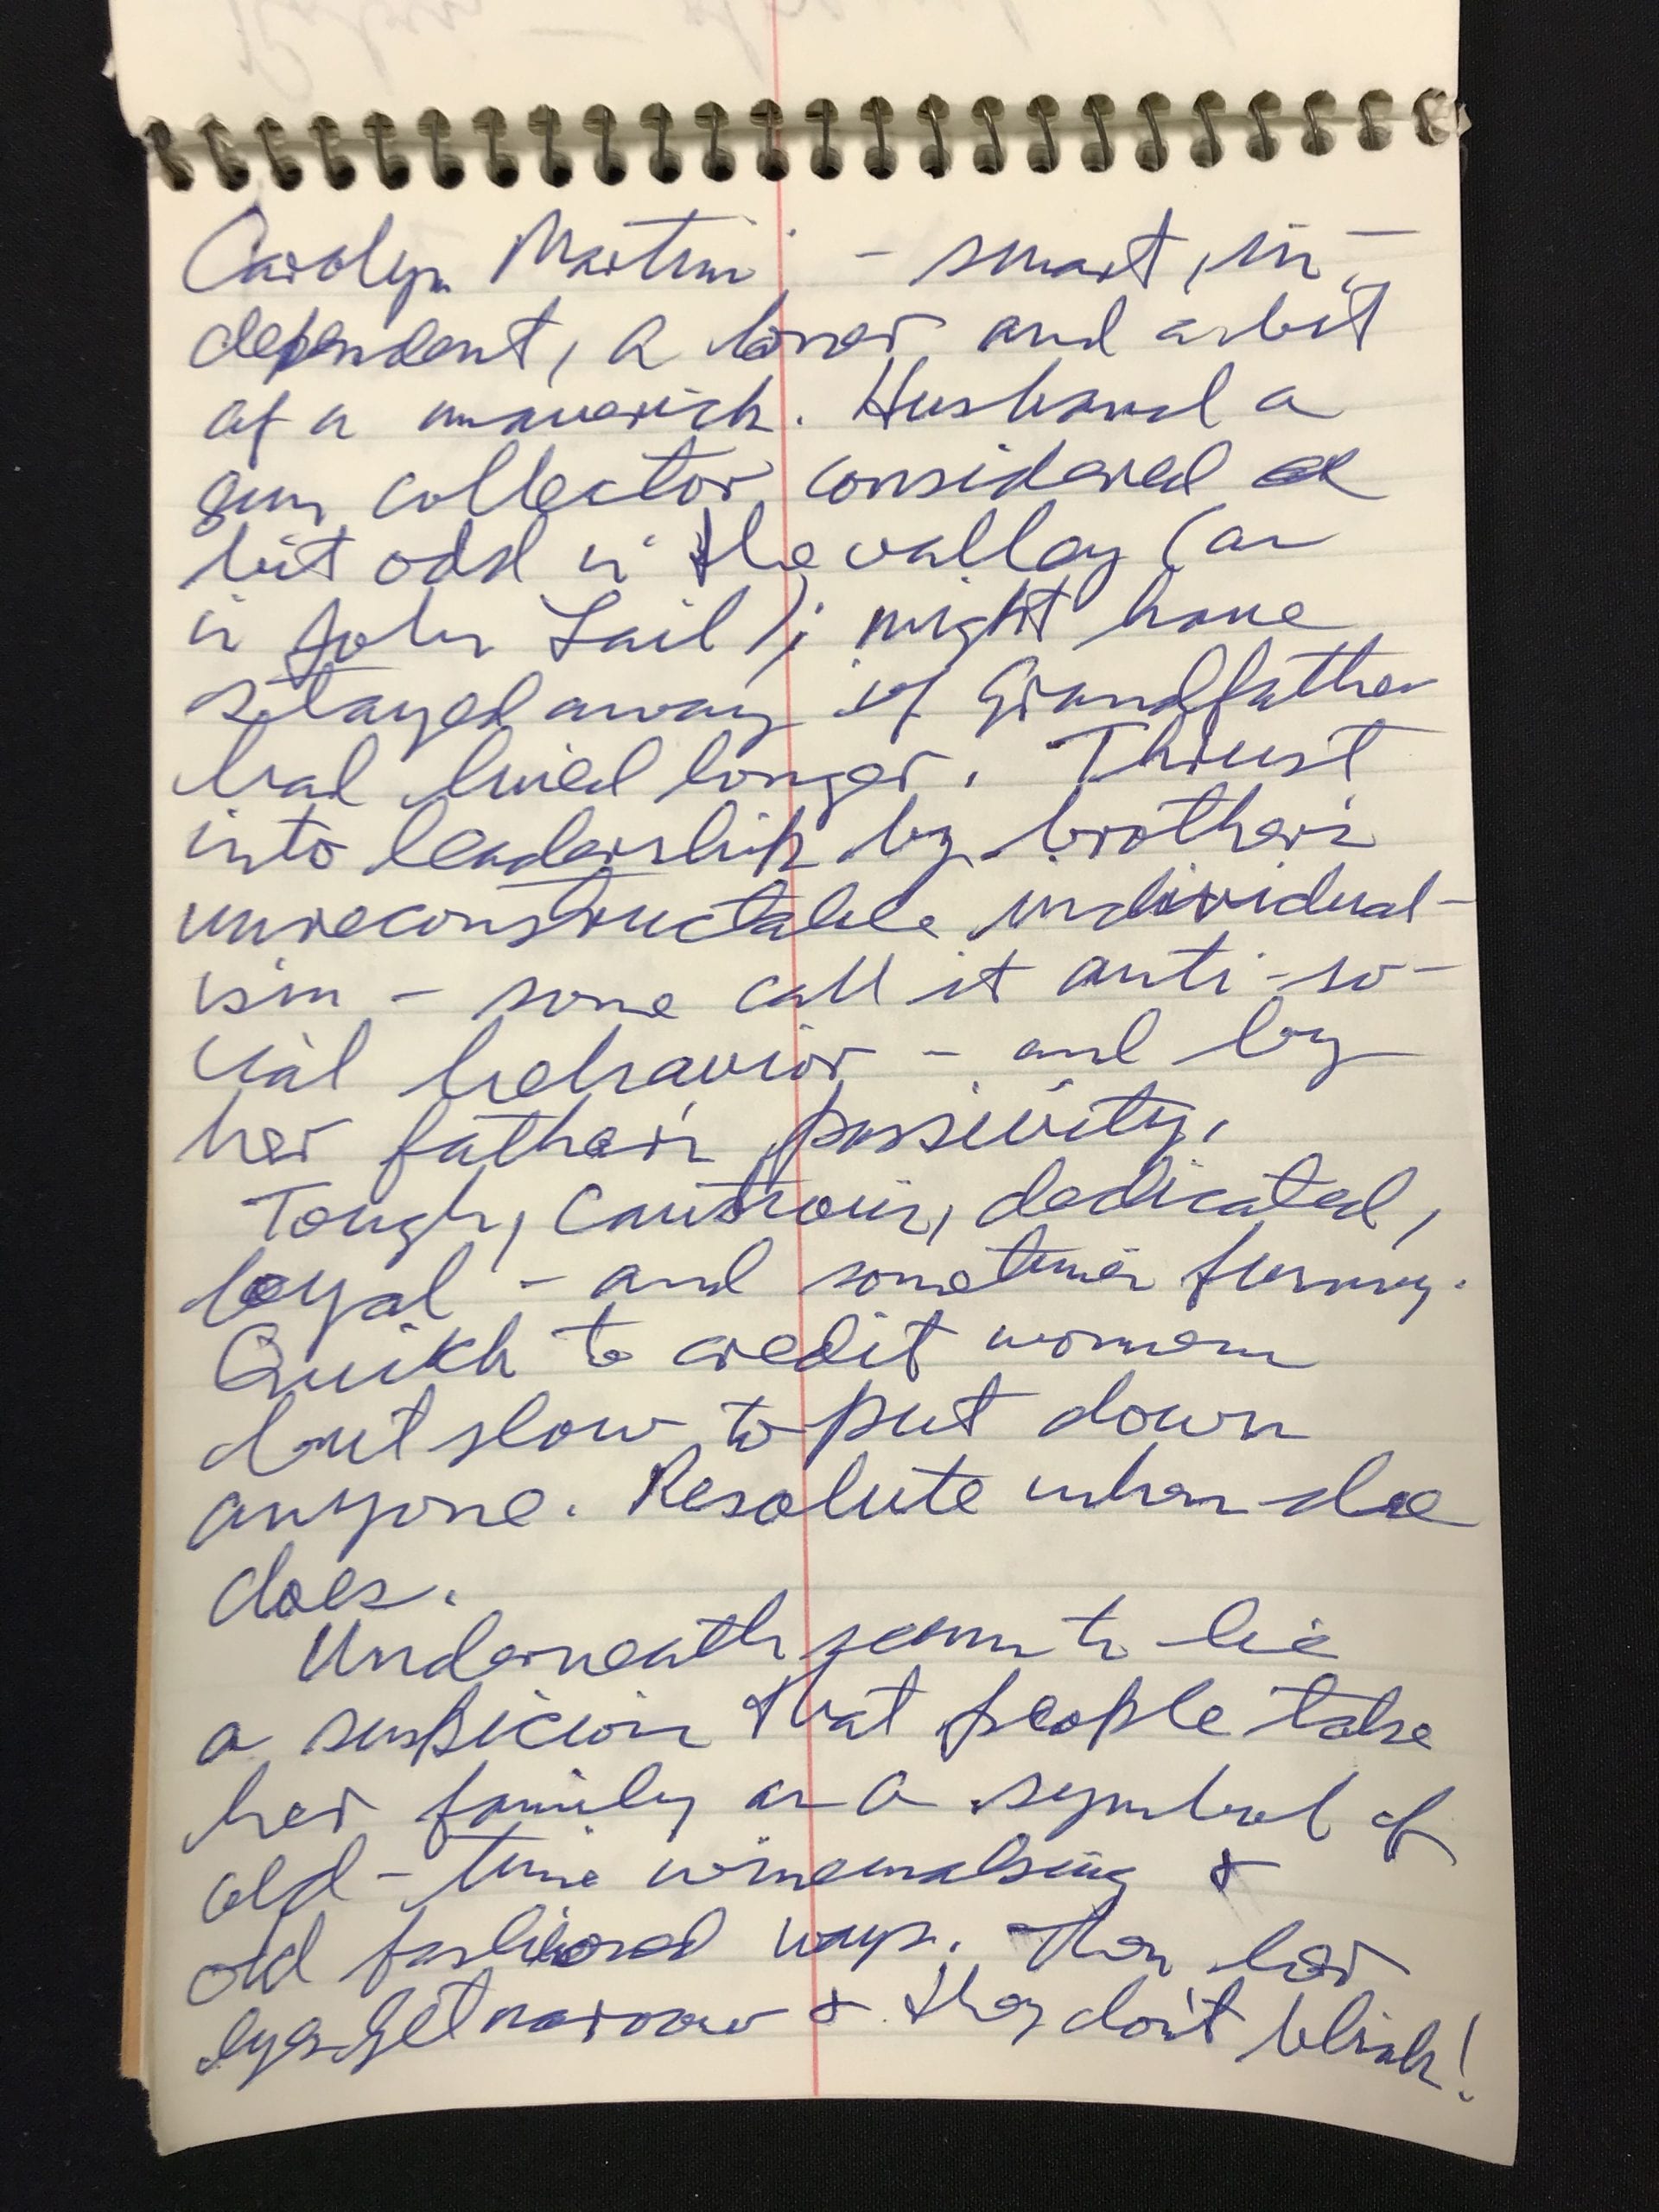 Carolyn Martini - smart, in-
dependent, a loner and a bit
of a maverick. Husband a
gun collector considered a
bit odd in the valley (as
is John Lail); might have
stayed away if Grandfather
had lived longer. Thrust
into leadership by brother's
unreconstructable individual-
ism - some call it anti-so-
cial behavior - and by
her father's passivity.
Tough, cautious, dedicated,
loyal - and sometimes funny.
Quick to credit women
but slow to put down
anyone. Resolute when she
does.
Underneath seems to lie
a suspicion that people take
her family as a symbol of
old-time winemaking &
old fashioned ways. Then her
eyes get narrow & they don't blink!